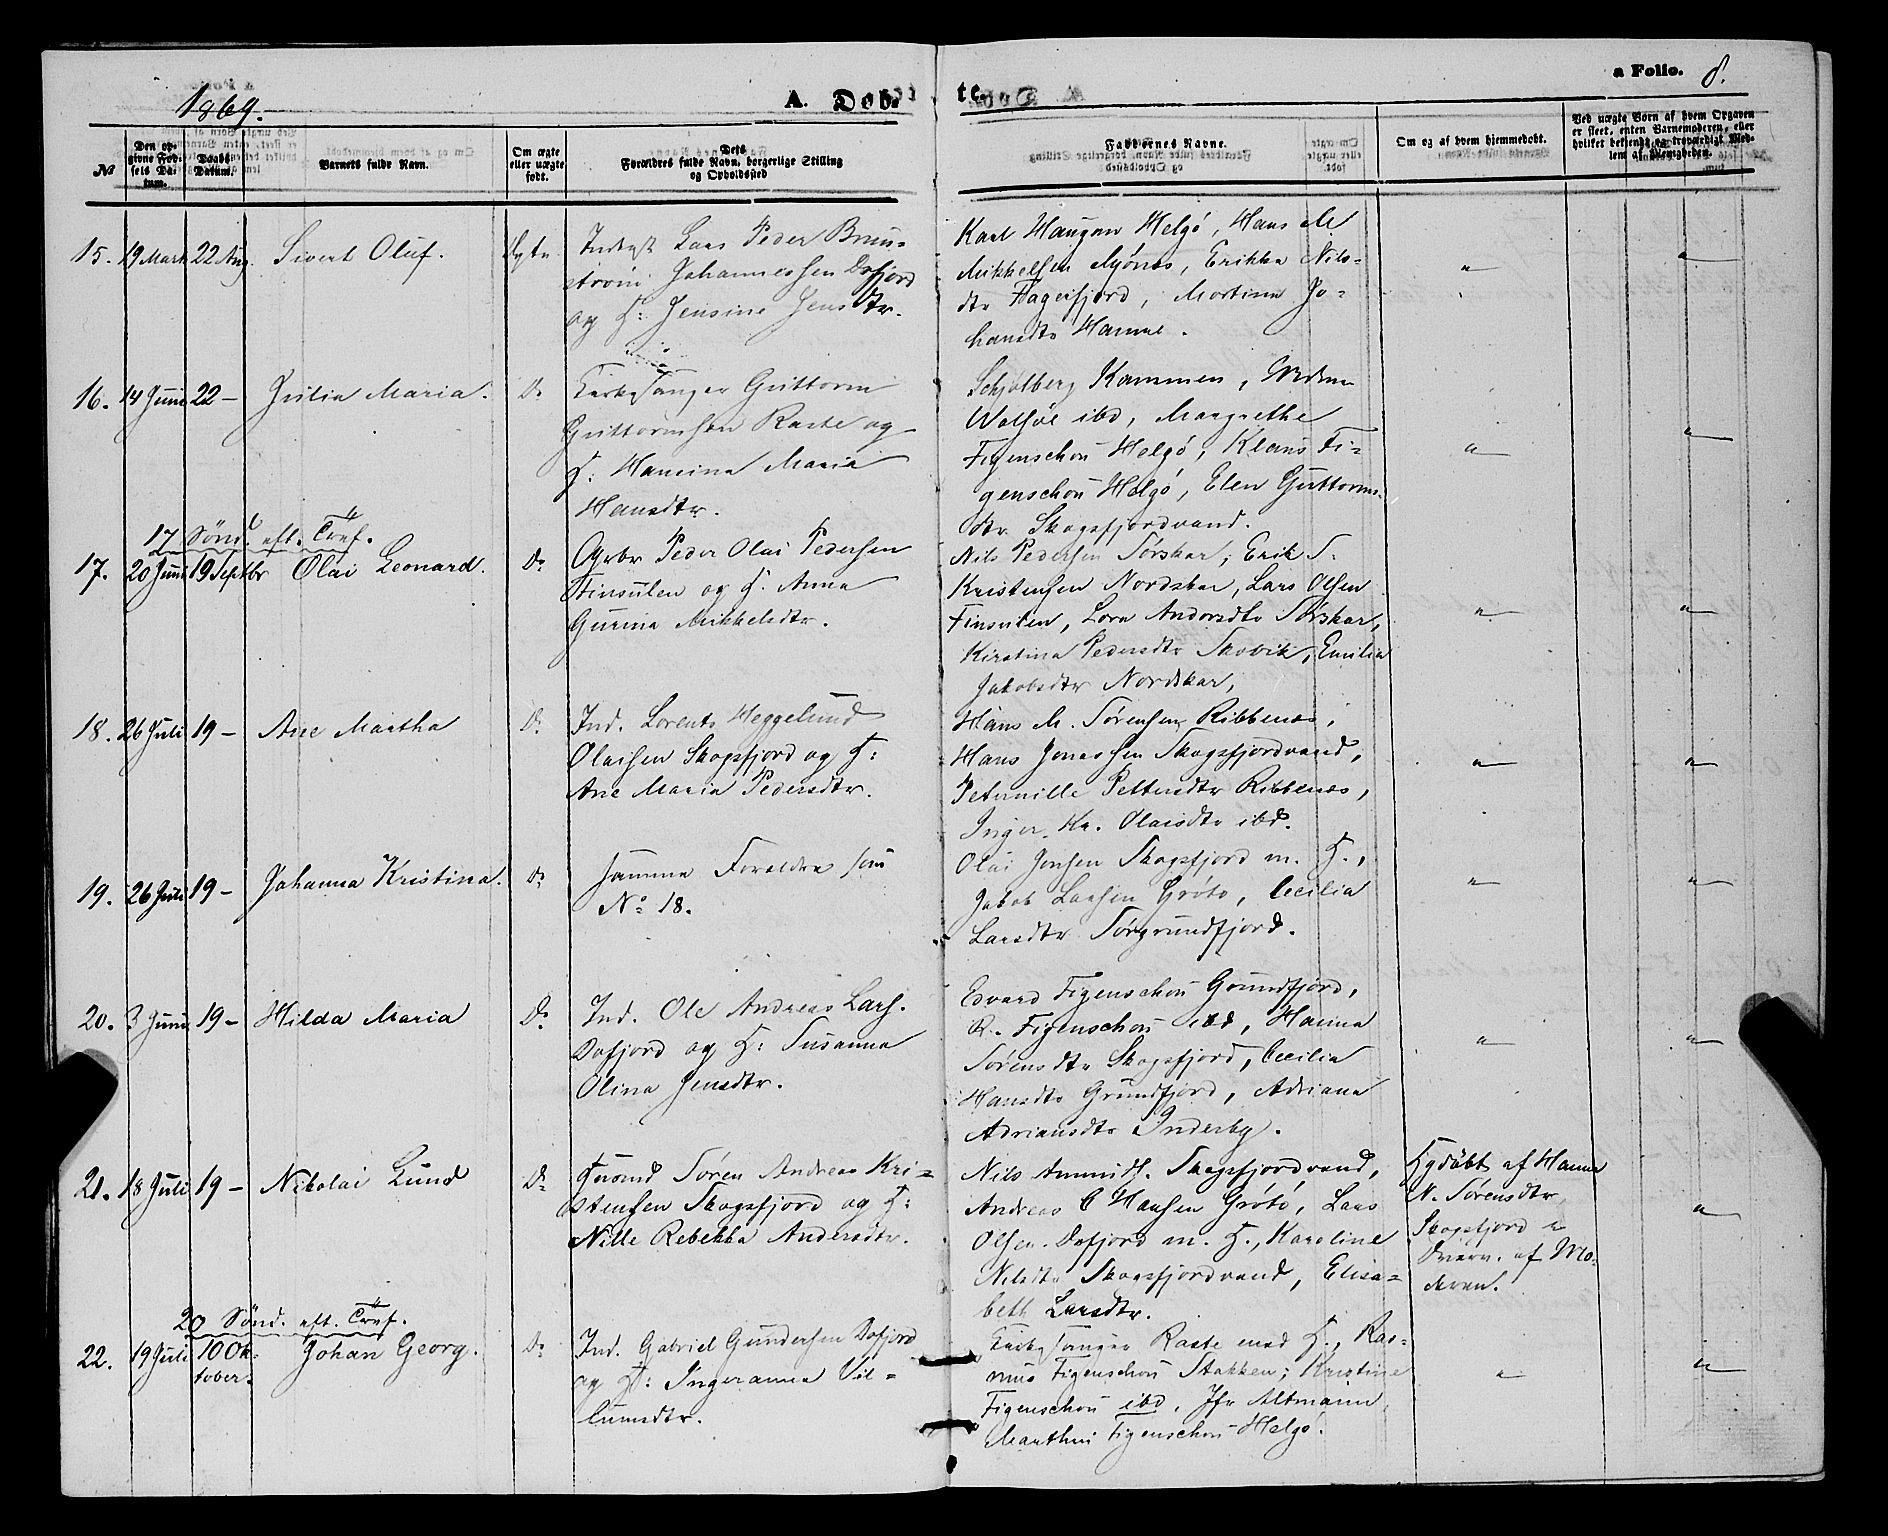 1869.
A. Døb-
te.
a Folio. 8.
№
Den op-
givne Fød-
sels Da-
tum.
Daabs
Datum.
Barnets fulde Navn.
Om ægte
eller uægte
født.
Dets
Forældres fulde Navn, borgerlige Stilling
og Opholdssted
Faddernes Navne.
Om og af hvem hjemmedøbt.
Ved uægte Børn af hvem Opgaven
er skeet, enten Barnemoderen, eller
hvilket bekjendt og troværdigt Med-
lem af Menigheden.
15. 19 Marts 22 Aug. Sivert Oluf. Ægte
Lars Peder Brun-
strøm Johannessen Dafjord
og H: Jensine Jensdtr.
Karl Haugan Helgø, Hans M
Mikkelsen Mjønes, Erikka Nils-
dtr Fagerfjord, Martine Jo-
hansdtr Hamre.
16. 14 Juni 22 – Julia Maria. Do
Kirkesanger Guttorm
Guttormsen Raste og
H: Hansina Maria
Hansdtr.
Schjølberg Kammen,
ibd, Margrethe
Figenschou Helgø, Klaus Fi-
genschou Helgø, Elen Guttorms-
dtr Skogsfjordvand.
17 Sønd. eft. Tref.
17. 20 Juni 19 Septbr Olai Leonard. Do
Gbr Peder Olai Pedersen
Finsulen og H. Anna
Gurina Mikkelsdtr.
Nils Pedersen Sørskar, Erik S.
Kristensen Nordskar, Lars Olsen
Finsulen, Lova Andersdtr Sørskar,
Kirstina Pedersdtr Skovik, Emilia
Jakobsdtr Nordskar,
18. 26 Juli 19 – Ane Martha Do
Ind. Lorents Heggelund
Olaisen Skogsfjord og H:
Ane Maria Pedersdtr.
Hans M. Sørensen Ribbenes,
Hans Jonassen Skogsfjordvand,
Petunille Pettersdtr Ribbenes,
Inger Kr. Olaisdtr ibd.
19. 26 Juli 19 – Johanna Kristina. Do
Samme Forældre som
No 18.
Olai Jonsen Skogsfjord m. H.,
Jakob Larsen Grøtø, Cecilia
Larsdtr Sørgrundfjord.
20. 3 Juni 19 – Hilda Maria Do
Ind. Ole Andreas Lars.
Dafjord og H: Susanna
Olina Jensdtr.
Edvard Figenschou Grundfjord,
R. Figenschou ibd, Hanna
Sørensdtr Skogsfjord, Cecilia
Hansdtr Grundfjord, Adriana
Adriansdtr Inderby.
21. 18 Juli 19 – Nikolai Lund Do
Husmd Søren Andreas Kri-
stensen Skogsfjord og H:
Nille Rebekka Andersdtr.
Nils Skogsfjordvand,
Andreas C Hansen Grøtø, Lars
Olsen Dafjord m. H., Karoline
Nilsdtr Skogsfjordvand, Elisa-
beth Larsdtr.
Hjdøbt af Hanna
N. Sørensdtr
Skogsfjord
af Mo-
deren.
20 Sønd. eft. Tref.
22. 19 Juli 10 Ok-
tober. Johan Georg. Do
Ind. Gabriel Gundersen Dafjord
og H: Ingeranna Vil-
lumsdtr.
Kirkesanger Raste med H., Ras-
mus Figenschou Stakken, Kristine
Figenschou ibd, Jfr Altmann,
Marthin Figenschou Helgø.